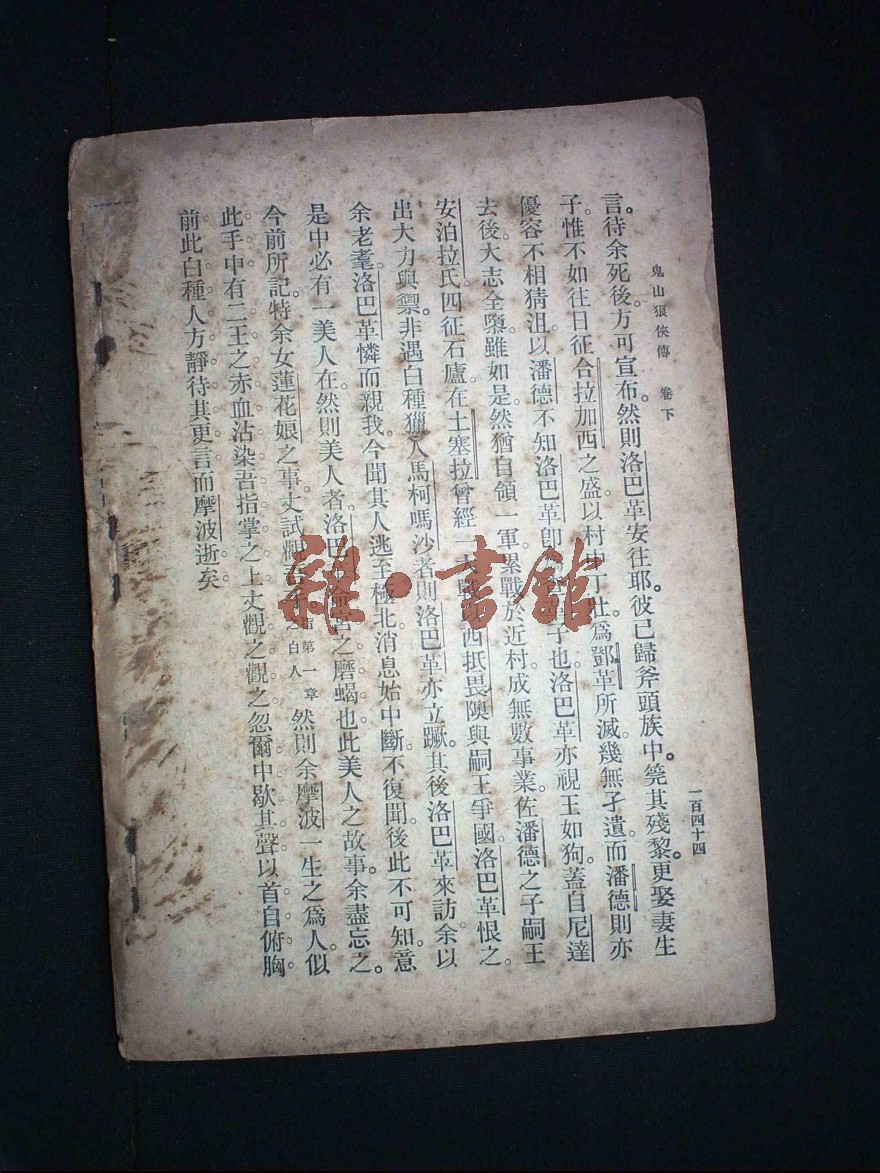 鬼山狼俠傳 卷下
一百四十四
言。待余死後。方可宣布。然則洛巴革安往耶。彼已歸斧頭族中。筦其殘黎。更娶妻生
子。惟不如往日征合拉加西之盛。以村中丁壯。為鄧革所滅。幾無孑遺。而潘德則亦
優容不相猜沮。以潘德不知洛巴革即 子也。洛巴革亦視王如狗。蓋自尼達
去後。大志全隳。雖如是。然猶自領一軍。累戰於近村。成無數事業。佐潘德之子嗣王
安泊拉氏四征石廬。在土塞拉曾經一大 西抵畏陝與嗣王爭國。洛巴革恨之。
出大力與禦。非遇白種獵人馬柯嗎沙者。則洛巴革亦立蹶。其後洛巴革來訪。余以
余老耄。洛巴革憐而親我。今聞其人逃至極北。消息始中斷。不復聞。後此不可知。意
是中必有一美人在。然則美人者。洛巴 命宮之磨蝎也。此美人之故事。余盡忘之。
今前所記。特余女蓮花娘之事。丈試觀 第一章白人 然則余摩波一生之為人。似
此手中有二王之赤血。沾染吾指掌之上。丈觀之觀之。忽爾中歇其聲。以首自俯胸
前。此白種人方靜待其更言。而摩波逝矣
雜·書館